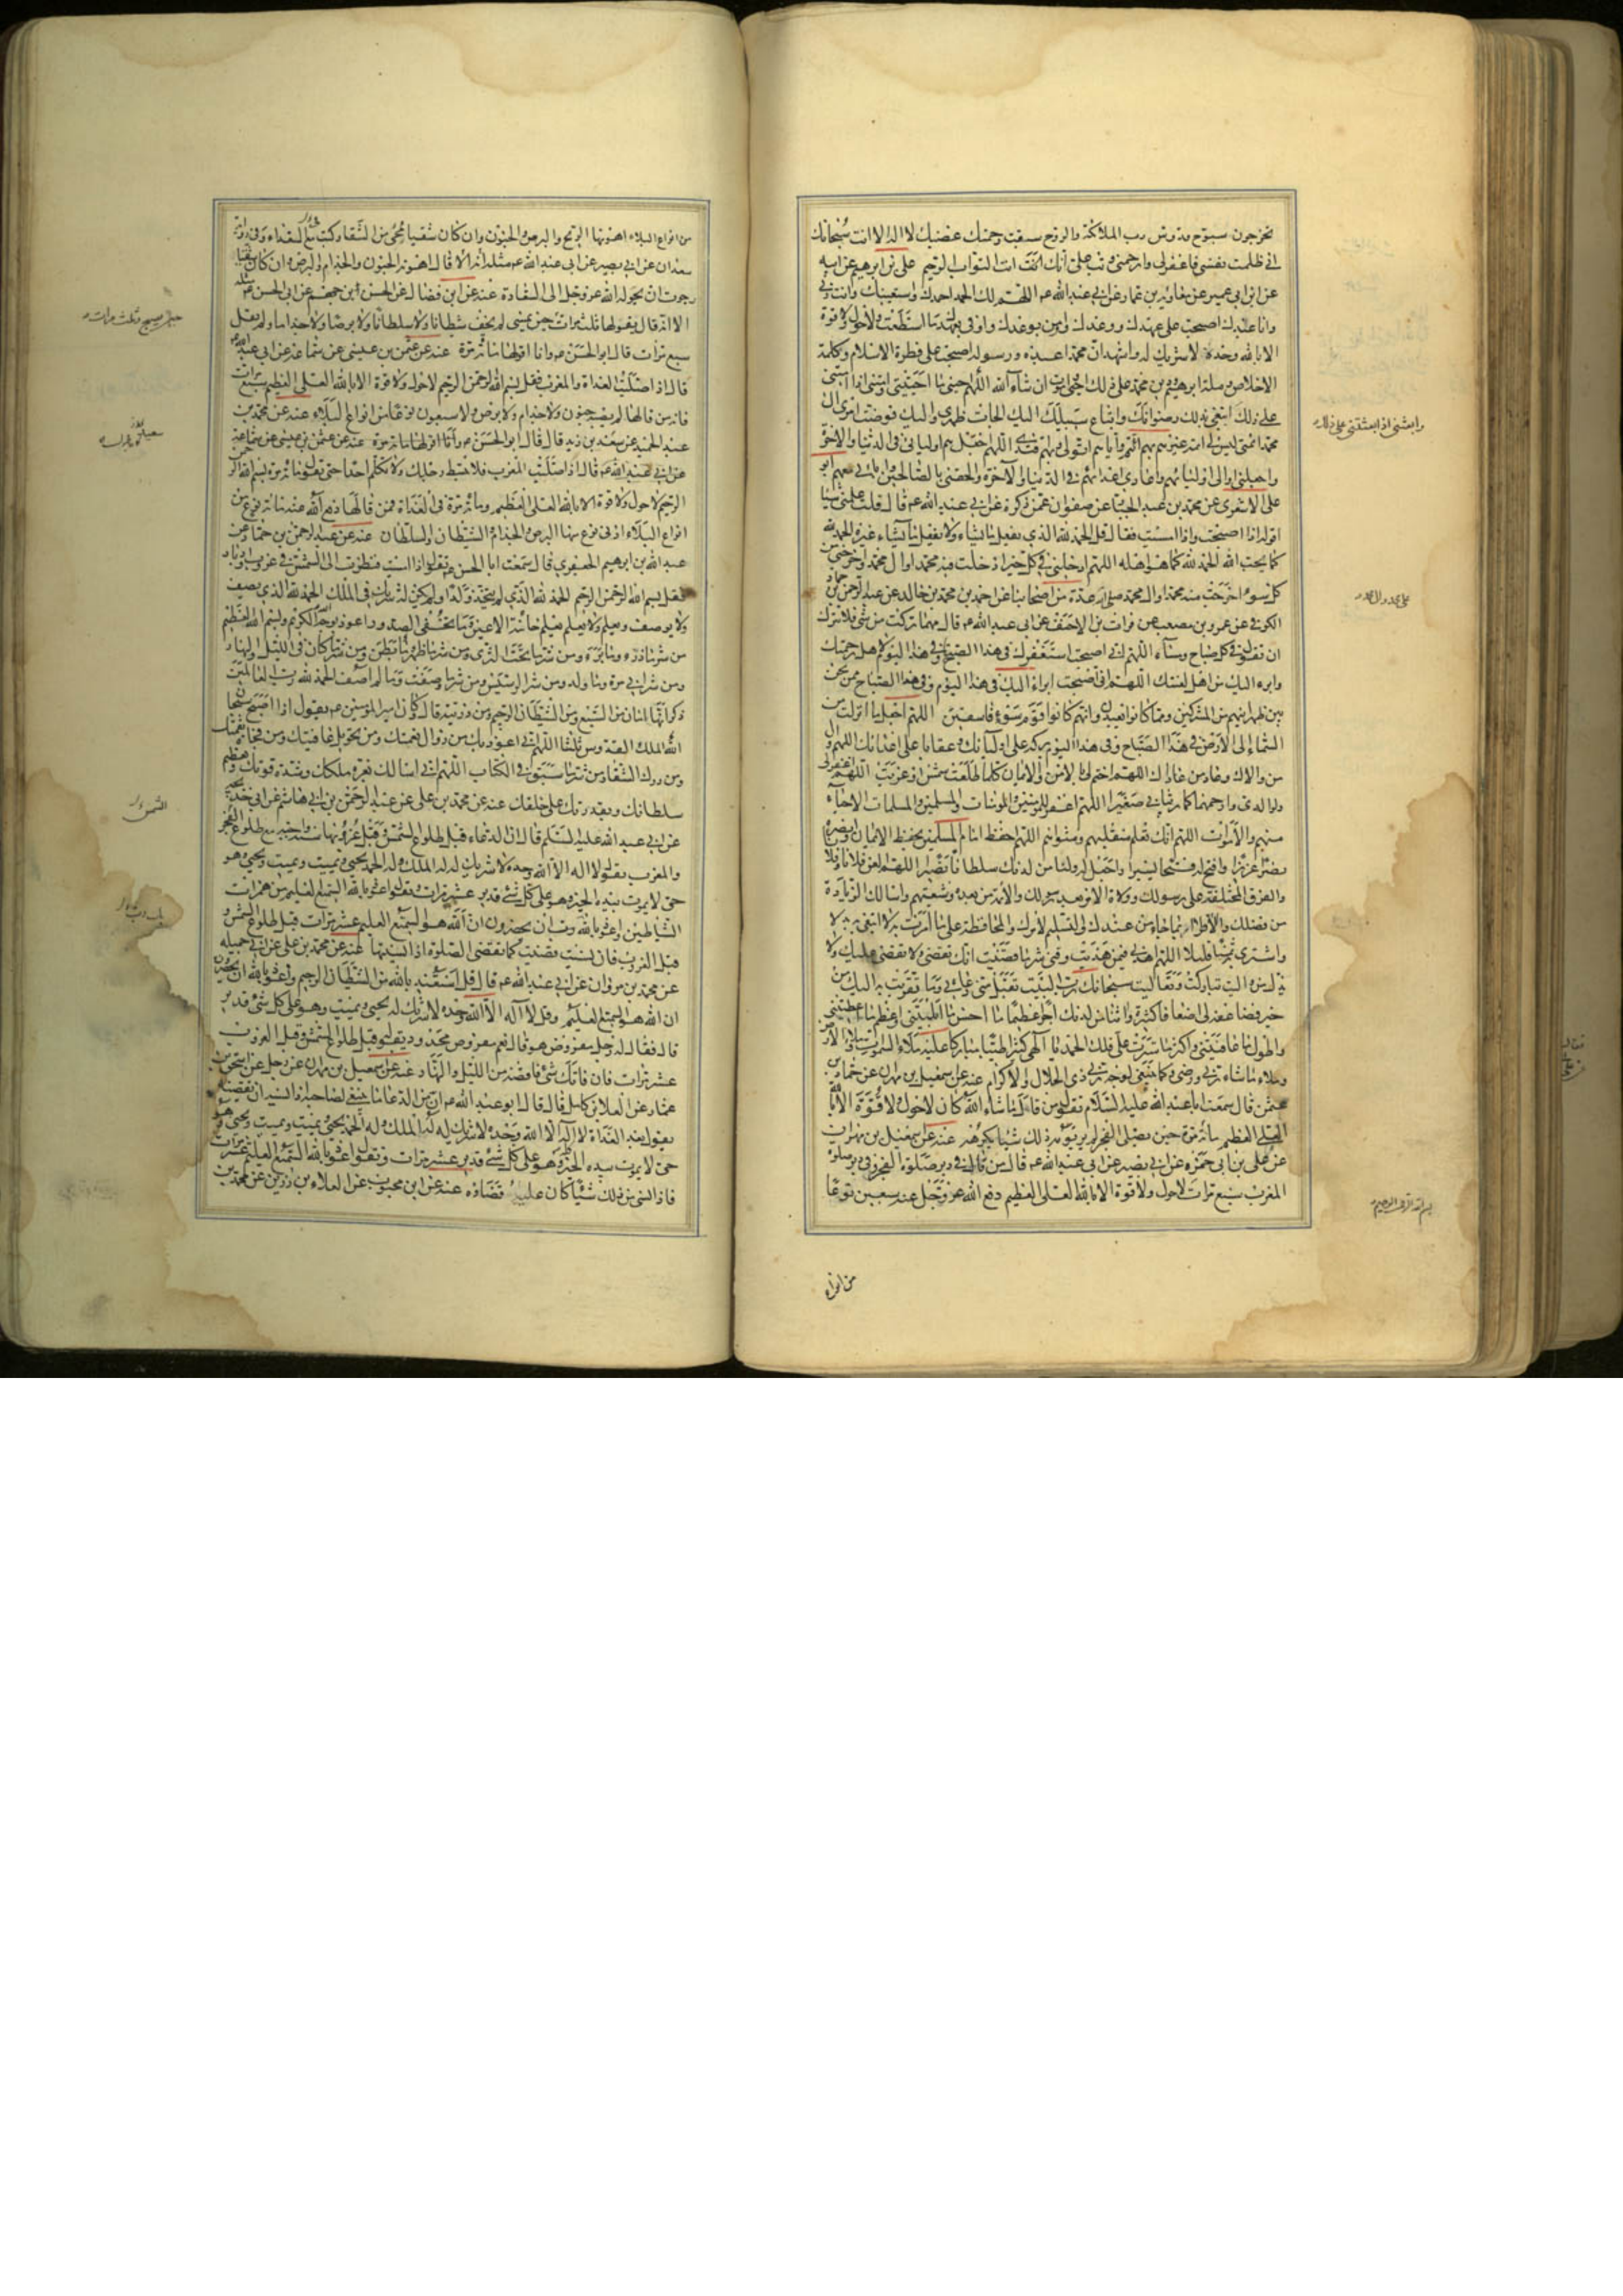 تخرجون سبوح قدوس رب الملائكة والروح سبقت رحمتك غضبك لا اله الا انت سبحانك
اني ظلمت نفسي فاغفر لي وارحمني وتب علي انك انت التواب الرحيم علي بن ابرهيم عن ابيه
عن ابن ابي عمير عن معاوية بن عمار عن ابي عبد الله ع اللهم لك الحمد احمدك واستعينك وانت ربي
وانا عبدك اصبحت على عهدك ووعدك واومن بوعدك واوفي بعهدك ما استطعت ولا حول ولا قوة
الا بالله وحده لا شريك له واشهد ان محمدا عبده ورسوله اصبحت على فطرة الاسلام وكلمة
الاخلاص وملة ابرهيم ودين محمد على ذلك احيى واموت ان شاء الله اللهم احيني ما احييتني وامتني اذا امتني
على ذلك ابتغي بذلك رضوانك واتباع سبيلك اليك الجات ظهري واليك فوضت امري ال
محمد ائمتي ليس لي ائمة غيرهم بهم ائتم واياهم اتولى وبهم اقتدي اللهم اجعلهم اوليائي في الدنيا والاخرة
واجعلني اوالي اولياءهم واعادي اعداءهم في الدنيا والاخرة والحقني بالصالحين وابائي معهم ابو
علي الاشعري عن محمد بن عبد الجبار عن صفوان عمن ذكره عن ابي عبد الله ع قال قلت علمني شيئا
اقوله اذا اصبحت واذا امسيت فقال قل الحمد لله الذي يفعل ما يشاء ولا يفعل ما يشاء غيره الحمد لله
كما يحب الله الحمد لله كما هو اهله اللهم ادخلني في كل خير ادخلت فيه محمدا وال محمد واخرجني من
كل سوء اخرجت منه محمدا وال محمد صلى عدة من اصحابنا عن احمد بن محمد بن خالد عن عبد الرحمن بن حماد
الكوفي عن عمرو بن مصعب عن فرات بن الاحنف عن ابي عبد الله ع قال مهما تركت من شيء فلا تترك
ان تقول في كل صباح ومساء اللهم اني اصبحت استغفرك في هذا الصباح وفي هذا اليوم لاهل رحمتك
وابرء اليك من اهل لعنتك اللهم اني اصبحت ابرء اليك في هذا اليوم وفي هذا الصباح ممن نحن
بين ظهرانيهم من المشركين ومما كانوا يعبدون انهم كانوا قوم سوء فاسقين اللهم اجعل ما انزلت من
السماء الى الارض في هذا الصباح وفي هذا اليوم بركة على اوليائك وعقابا على اعدائك اللهم وال
من والاك وعاد من عاداك اللهم اختم لي بالامن والايمان كلما طلعت شمس او غربت اللهم اغفر لي
ولوالدي وارحمهما كما ربياني صغيرا اللهم اغفر للمومنين والمومنات والمسلمين والمسلمات الاحياء
منهم والاموات اللهم انك تعلم منقلبهم ومثواهم اللهم احفظ امام المسلمين بحفظ الايمان وانصره
نصرا عزيزا وافتح له فتحا يسيرا واجعل له ولنا من لدنك سلطانا نصيرا اللهم العن فلانا وفلانا
والفرق المختلفة على رسولك وولاة الامر بعد رسولك والائمة من بعده وشيعتهم واسالك الزيادة
من فضلك والاقرار بما جاء من عندك والتسليم لامرك والمحافظة على ما امرت به لا ابتغي به بدلا
ولا اشتري به ثمنا قليلا اللهم اهدني فيمن هديت وقني شر ما قضيت انك تقضي ولا يقضى عليك ولا
يذل من واليت تباركت وتعاليت سبحانك رب البيت تقبل مني دعائي وما تقربت به اليك من
خير فضاعفه لي اضعافا كثيرة واتنا من لدنك اجرا عظيما رب ما احسن ما ابليتني واعظم ما اعطيتني
واطول ما عافيتني واكثر ما سترت علي فلك الحمد يا الهي كثيرا طيبا مباركا عليه ملاء السموات وملاء الارض
وملاء ما شاء ربي ورضي وكما ينبغي لوجه ربي ذي الجلال والاكرام عنه عن اسمعيل بن مهران عن حماد بن
عثمن قال سمعت ابا عبد الله عليه السلام يقول من قال ما شاء الله كان لا حول ولا قوة الا بالله
العلي العظيم مائة مرة حين يصلي الفجر لم ير يومه ذلك شيئا يكرهه عنه عن اسمعيل بن مهران
عن علي بن ابي حمزة عن ابي بصير عن ابي عبد الله ع قال من قال في دبر صلوة الفجر وفي دبر صلوة
المغرب سبع مرات لا حول ولا قوة الا بالله العلي العظيم دفع الله عز وجل عنه سبعين نوعا
من انواع
وابعثني اذا بعثتني على ذلك
على محمد وال محمد
بسم الله الرحمن الرحيم
من انواع البلاء اهونها الريح والبرص والجنون وان كان شقيا محي من الشقاء وكتب في السعداء وفي رواية
سعدان عن ابي بصير عن ابي عبد الله ع مثله الا انه قال اهونه الجنون والجذام والبرص وان كان شقيا
رجوت ان يحوله الله عز وجل الى السعادة عنه عن ابن فضال عن الحسن بن جهم عن ابي الحسن ع مثله
الا انه قال يقولها ثلث مرات حين يمسي لم يخف شيطانا ولا سلطانا ولا برصا ولا جذاما ولم يقل
سبع مرات قال ابو الحسن ع وانا اقولها مائة مرة عنه عن عثمن بن عيسى عن سماعة عن ابي عبد الله ع
قال اذا صليت الغداة والمغرب فقل بسم الله الرحمن الرحيم لا حول ولا قوة الا بالله العلي العظيم سبع مرات
فانه من قالها لم يصبه جنون ولا جذام ولا برص ولا سبعون نوعا من انواع البلاء عنه عن محمد بن
عبد الحميد عن سعد بن زيد قال قال ابو الحسن ع
عن ابي عبد الله ع قال اذا صليت المغرب فلا تبسط رجلك ولا تكلم احدا حتى تقول مائة مرة بسم الله الرحمن
الرحيم لا حول ولا قوة الا بالله العلي العظيم ومائة مرة في الغداة فمن قالها دفع الله عنه مائة نوع من
انواع البلاء ادنى نوع منها البرص والجذام والشيطان والسلطان عنه عن عبد الرحمن بن حماد عن
عبد الله بن ابرهيم الجعفري قال سمعت ابا الحسن ع يقول اذا امسيت فنظرت الى الشمس في غروب وادبار
فقل بسم الله الرحمن الرحيم الحمد لله الذي لم يتخذ ولدا ولم يكن له شريك في الملك الحمد لله الذي يصف
ولا يوصف ويعلم ولا يعلم يعلم خائنة الاعين وما تخفي الصدور واعوذ بوجه الله الكريم وبسم الله العظيم
من شر ما ذرء وما برء ومن شر ما تحت الثرى ومن شر ما ظهر وما بطن ومن شر ما كان في الليل والنهار
ومن شر ابي مرة وما ولد ومن شر الرسيس ومن شر ما وصفت وما لم اصف الحمد لله رب العالمين
ذكر انها امان من السبع ومن الشيطان الرجيم ومن ذريته قال وكان امير المومنين ع يقول اذا اصبح سبحان
الله الملك القدوس ثلثا اللهم اني اعوذ بك من زوال نعمتك ومن تحويل عافيتك ومن فجاة نقمتك
ومن درك الشقاء ومن شر ما سبق في الكتاب اللهم اني اسالك بعزة ملكك وشدة قوتك وعظيم
سلطانك وبقدرتك على خلقك عنه عن محمد بن علي عن عبد الرحمن بن ابي هاشم عن ابي خديجة
عن ابي عبد الله عليه السلام قال ان الدعاء قبل طلوع الشمس وقبل غروبها سنة واجبة مع طلوع الفجر
والمغرب يقول لا اله الا الله وحده لا شريك له له الملك وله الحمد يحيي ويميت ويميت ويحيي وهو
حي لا يموت بيده الخير وهو على كل شيء قدير عشر مرات ويقول اعوذ بالله السميع العليم من همزات
الشياطين واعوذ بالله رب ان يحضرون ان الله هو السميع العليم عشر مرات قبل طلوع الشمس و
قبل الغروب فان نسيت قضيت كما تقضي الصلوة اذا نسيتها عنه عن محمد بن علي عن ابي جميلة
عن محمد بن مروان عن ابي عبد الله ع قال قل استعيذ بالله من الشيطان الرجيم واعوذ بالله ان يحضرون
ان الله هو السميع العليم وقل لا اله الا الله وحده لا شريك له يحيي ويميت وهو على كل شيء قدير
قال فقال له رجل مفروض هو قال نعم مفروض محدود يقوله قبل طلوع الشمس وقبل الغروب
عشر مرات فان فاتك شيء فاقضه من الليل والنهار عنه عن اسمعيل بن مهران عن رجل عن اسحق بن
عمار عن العلا بن كامل قال قال ابو عبد الله ع ان من الدعاء ما ينبغي لصاحبه اذا نسيه ان يقضيه
يقول بعد الغداة لا اله الا الله وحده لا شريك له له الملك وله الحمد يحيي ويميت ويميت ويحيي وهو
حي لا يموت بيده الخير وهو على كل شيء قدير عشر مرات ويقول اعوذ بالله السميع العليم عشر مرات
فاذا نسي من ذلك شيئا كان عليه قضاؤه عنه عن ابن محبوب عن العلاء بن رزين عن محمد بن
حين يصبح وثلث مرات
الشمس